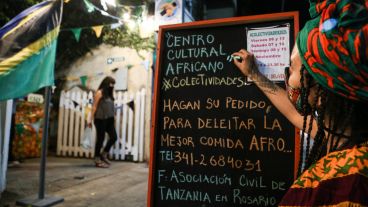 CENTRO
CULTURAL
AFRICANO
#COLECTIVIDADES
HAGAN SU PEDIDO
PARA DELEITAR LA
MEJOR COMIDA AFRO...
TEL: 341-2684031
F: ASOCIACIÓN CIVIL DE
TANZANIA EN ROSARIO
#COLECTIVIDADES
Viernes
Sábado
Domingo